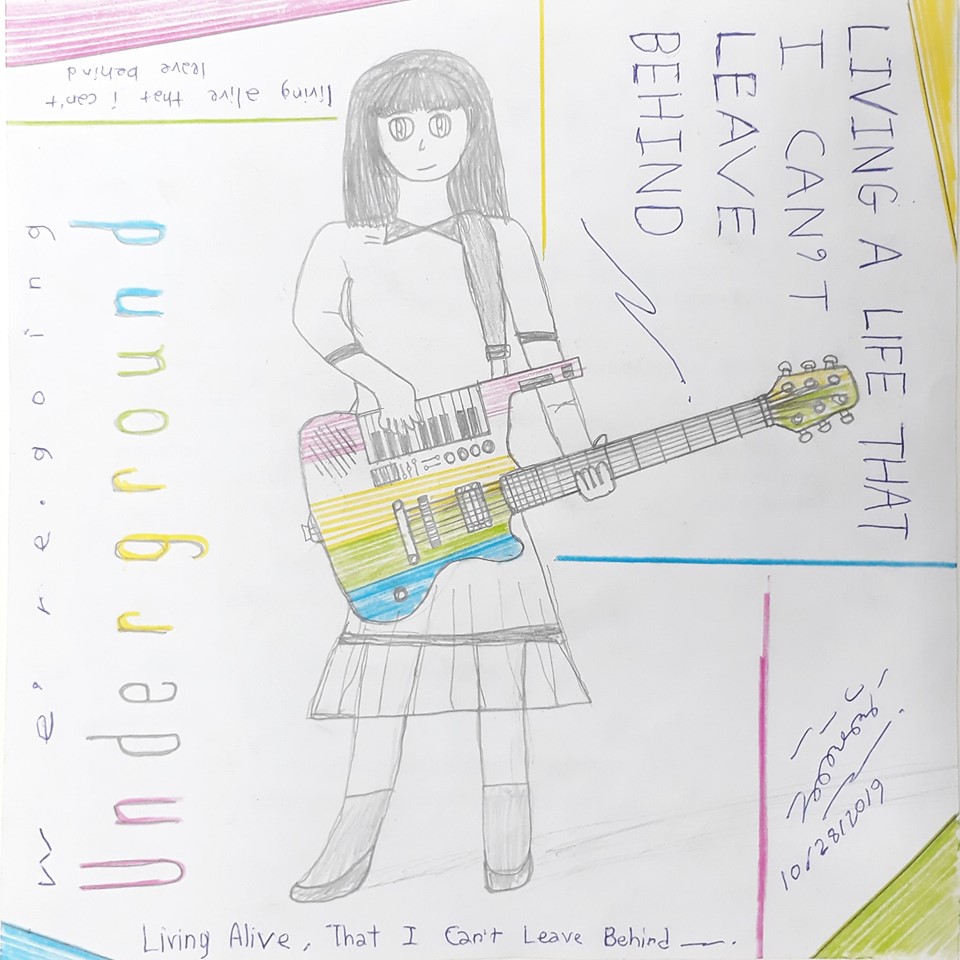 living alive that i can't
leave behind
LIVING A LIFE THAT
I CAN'T
LEAVE
BEHIND
we're.going
Underground
10/28/2019
Living Alive, That I Can't Leave Behind —.